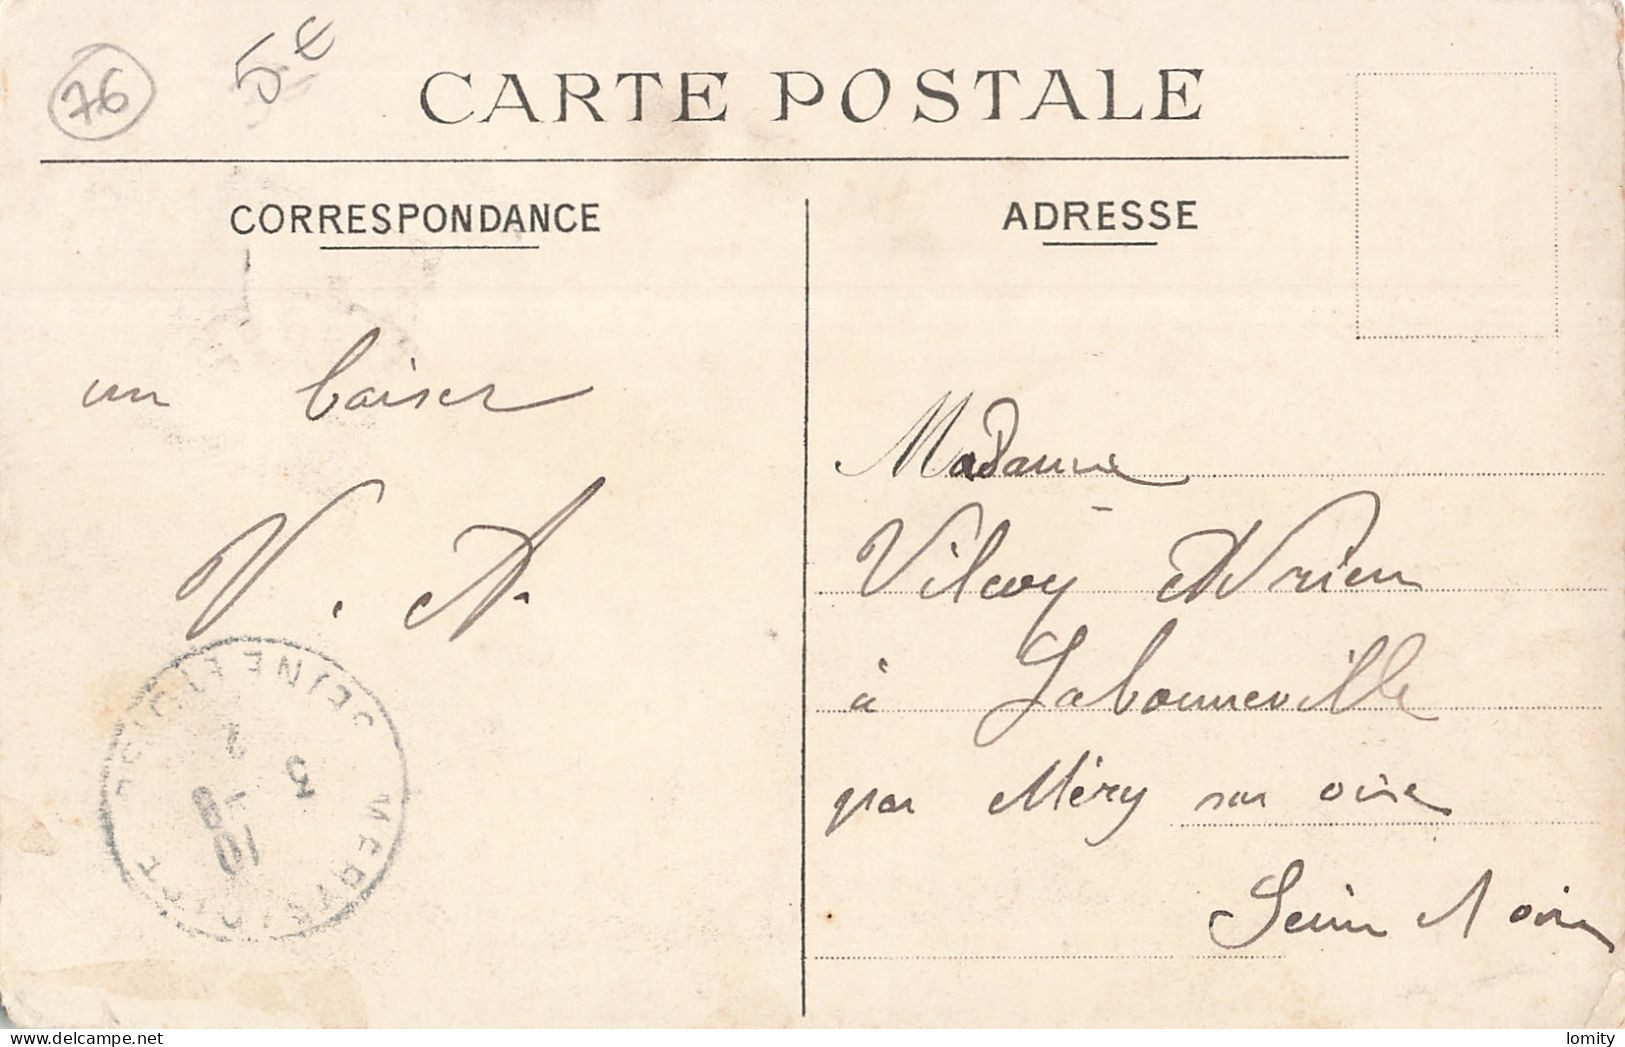 76
5.€
CARTE POSTALE
CORRESPONDANCE
ADRESSE
un baiser
V. A.
Madame
Vilcoy Adrien
à Labonneville
par Méry sur oise
Seine & oise
SEINE ET OISE
3 - 8
10
MERY S/ OISE
lomity
delcampe.net